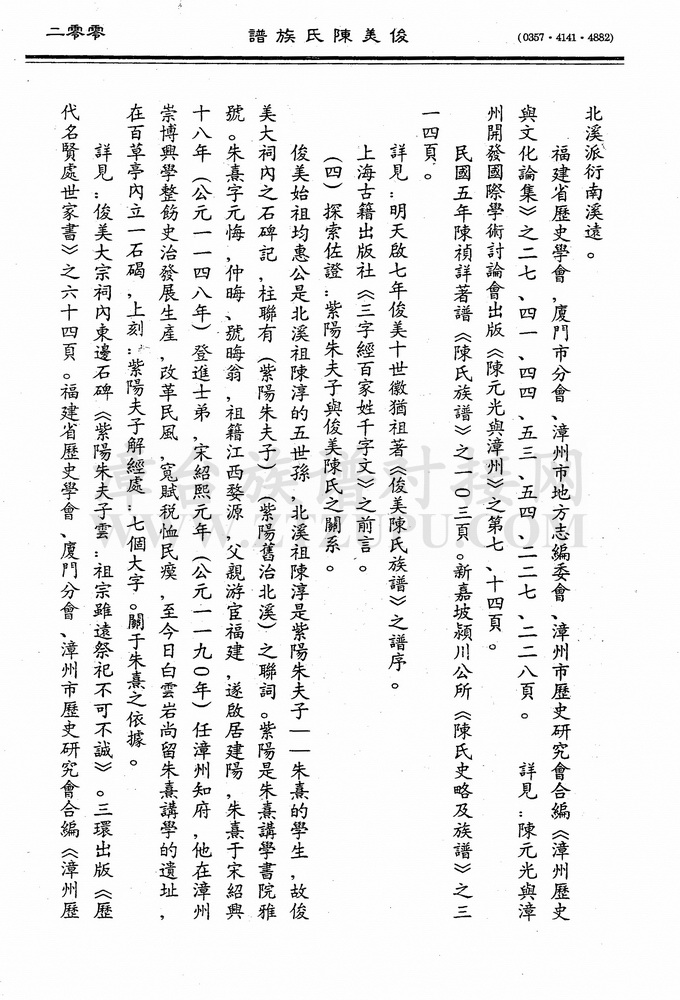 (0357·4141·4882)
俊美陳氏族譜
二零零
北溪派衍南溪遠。
福建省歷史學會，廈門市分會、漳州市地方志編委會、漳州市歷史研究會合編《漳州歷史
與文化論集》之二七、四一、四四、五三、五四、二二七、二二八頁。　詳見：陳元光與漳
州開發國際學術討論會出版《陳元光與漳州》之第七、十四頁。
民國五年陳禎詳著譜《陳氏族譜》之一〇三頁。新嘉坡潁川公所《陳氏史略及族譜》之三
一四頁。
詳見：明天啟七年俊美十世徽猶祖著《俊美陳氏族譜》之譜序。
上海古籍出版社《三字經百家姓千字文》之前言。
（四）探索佐證：紫陽朱夫子與俊美陳氏之關系。
俊美始祖均惠公是北溪祖陳淳的五世孫，北溪祖陳淳是紫陽朱夫子——朱熹的學生，故俊
美大祠內之石碑記，柱聯有（紫陽朱夫子）（紫陽舊治北溪）之聯詞。紫陽是朱熹講學書院雅
號。朱熹字元悔，仲晦、號晦翁，祖籍江西婺源，父親游宦福建，遂啟居建陽，朱熹于宋紹興
十八年（公元一一四八年）登進士弟，宋紹熙元年（公元一一九〇年）任漳州知府，他在漳州
崇博興學整飭史治發展生產，改革民風，寬賦税恤民瘼，至今日白雲岩尚留朱熹講學的遺址，
在百草亭內立一石碣，上刻：紫陽夫子解經處：七個大字。關于朱熹之依據。
詳見：俊美大宗祠內東邊石碑《紫陽朱夫子雲：祖宗雖遠祭祀不可不誠》。三環出版《歷
代名賢處世家書》之六十四頁。福建省歷史學會、廈門分會、漳州市歷史研究會合編《漳州歷
章台族谱对接网
WWW.ZTZUPU.COM